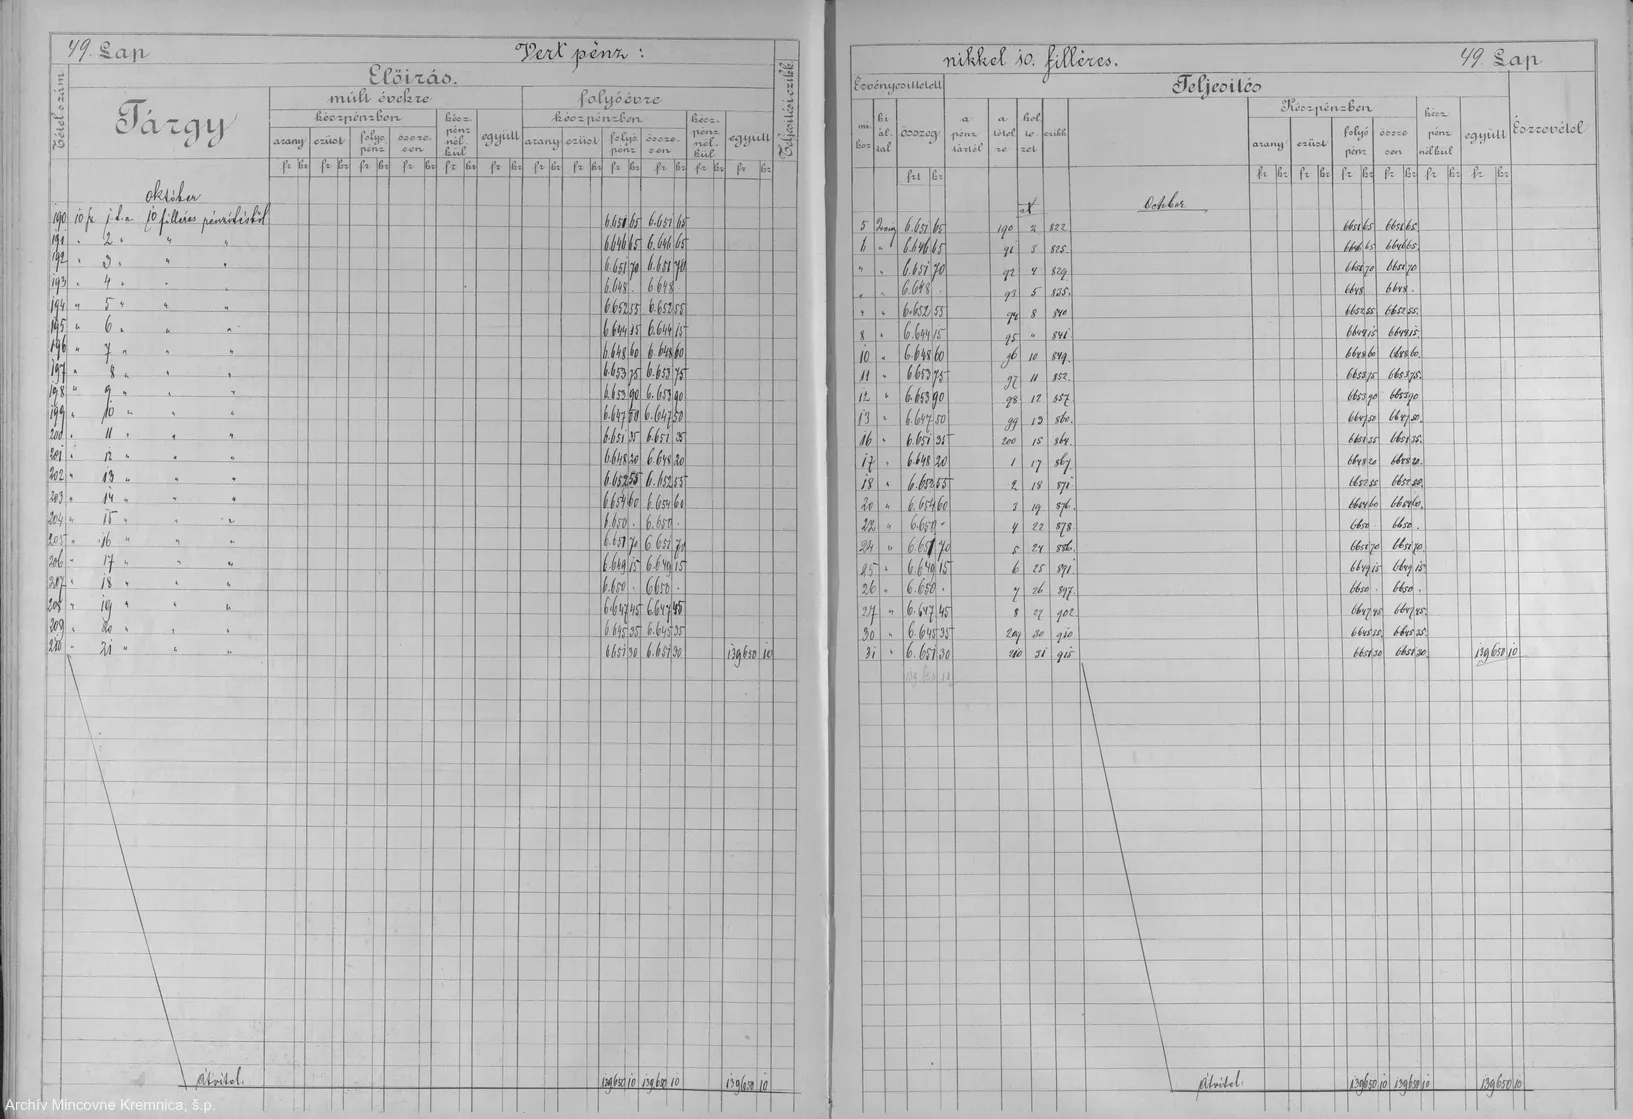 49. Lap Vert pénz:
Előirás.
Tétel szám
Tárgy
múlt évekre
folyóévre
Teljesitési czikk
készpénzben
kész pénz nélkül
együtt
készpénzben
kész pénz nélkül
együtt
arany ezüst folyó pénz össze-sen
arany ezüst folyó pénz össze-sen
fr kr fr kr fr kr fr kr fr kr fr kr fr kr fr kr fr kr fr kr fr kr fr kr
október
190 10 fr j.t.a 10 filléres pénzitésből 6.651 65 6.651 65
191 " 2 " " " 6.646 65 6.646 65
192 " 3 " " " 6.651 70 6.651 70
193 " 4 " " " 6.648 . 6.648 .
194 " 5 " " " 6.652 55 6.652 55
195 " 6 " " " 6.644 15 6.644 15
196 " 7 " " " 6.648 60 6.648 60
197 " 8 " " " 6.653 75 6.653 75
198 " 9 " " " 6.653 90 6.653 90
199 " 10 " " " 6.647 50 6.647 50
200 " 11 " " " 6.651 35 6.651 35
201 " 12 " " " 6.648 20 6.648 20
202 " 13 " " " 6.652 55 6.652 55
203 " 14 " " " 6.654 60 6.654 60
204 " 15 " " " 6.650 . 6.650 .
205 " 16 " " " 6.651 70 6.651 70
206 " 17 " " " 6.649 15 6.649 15
207 " 18 " " " 6.650 . 6650 .
208 " 19 " " " 6.647 45 6.647 45
209 " 20 " " " 6.645 35 6.645 35
210 " 21 " " " 6651 30 6.651 30 139650 10
Átvitel. 139650 10 139650 10 139650 10
nikkel 10. filléres. 49. Lap
Érvényesittetett
Teljesités
mikor ki által összeg a pénz tártól a tétel re kelte-zet czikk
Készpénzben
kész pénz nélkül
együtt
Észrevétel
arany ezüst folyó pénz össze sen
frt kr fr kr fr kr fr kr fr kr fr kr fr kr
October
5 6.651 65 190 2 822 6651 65 6651 65
6 " 6.646 65 91 3 825. 6646 65 6646 65
" " 6.651 70 92 4 829. 6651 70 6651 70
" " 6.648 . 93 5 835. 6648 6648 .
" " 6.652 55 94 8 840 6652 55 6652 55
8 " 6.644 15 95 " 841 6644 15 6644 15
10 " 6.648 60 96 10 849. 6648 60 6648 60
11 " 6.653 75 97 11 852. 6653 75 6653 75
12 " 6.653 90 98 12 857 6653 90 6653 90
13 " 6.647 50 99 13 860. 6647 50 6647 50
16 " 6.651 35 200 15 864. 6651 35 6651 35
17 " 6.648 20 1 17 867. 6648 20 6648 20
18 " 6.652 55 2 18 871 6652 55 6652 55
20 " 6.654 60 3 19 876. 6654 60 6654 60
22 " 6.650 - 4 22 878. 6650 . 6650 .
24 " 6.651 70 5 24 886. 6651 70 6651 70
25 " 6.649 15 6 25 891 6649 15 6649 15
26 " 6.650 . 7 26 897. 6650 . 6650 .
27 " 6.647 45 8 27 902. 6647 45 6647 45
30 " 6.645 35 209 30 910 6645 35 6645 35
31 " 6.651 30 210 31 915 6651 30 6651 30 139650 10
139650 10
Átvitel. 139650 10 139650 10 139650 10
Archív Mincovne Kremnica, š.p.